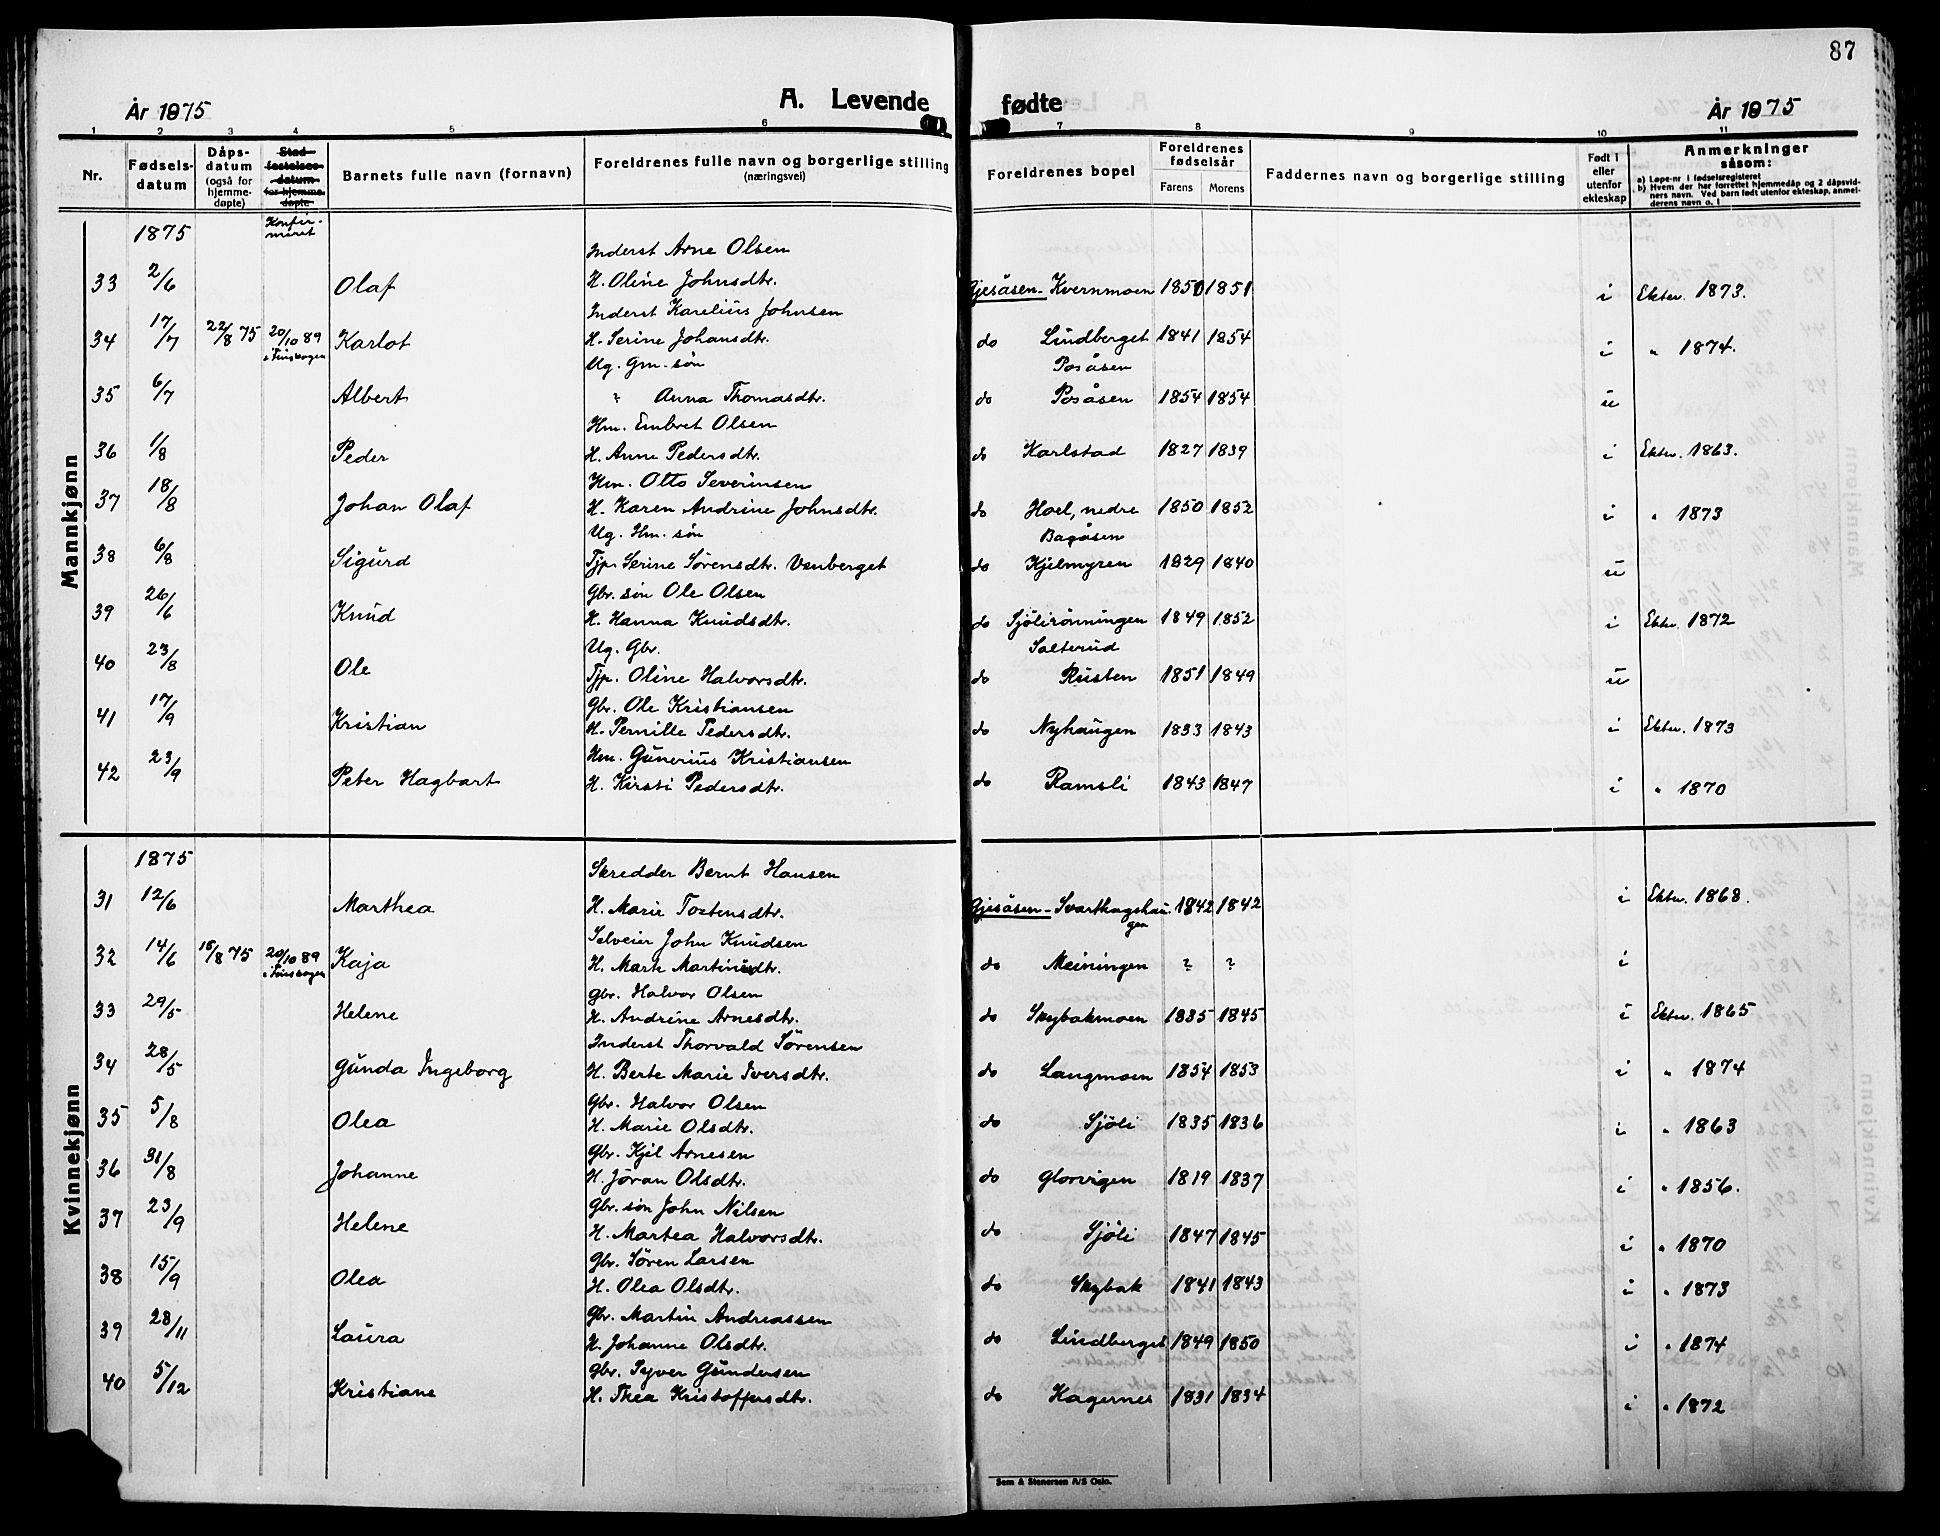 87
År 1875
A. Levende fødte
År 1875
1 2 3 4 5 6 7 8 9 10 11
Nr.
Fødselsdatum
Dåpsdatum (også for hjemmedøpte)
Stadfestelsesdatum for hjemmedøpte
Barnets fulle navn (fornavn)
Foreldrenes fulle navn og borgerlige stilling (næringsvei)
Foreldrenes bopel
Foreldrenes fødselsår
Farens Morens
Faddernes navn og borgerlige stilling
Født i eller utenfor ekteskap
Anmerkninger såsom:
a) Løpe-nr i fødselsregisteret
b) Hvem der har forrettet hjemmedåp og 2 dåpsvidners navn. Ved barn født utenfor ekteskap, anmelderens navn o. l
Mannkjønn
1875 Konfirmeret
Inderst Arne Olsen
33 2/6 Olaf H. Oline Johnsdtr. Gjesåsen - Kvernmoen 1850 1851 i Ektev. 1873.
Inderst Karelius Johnsen
34 17/7 22/8 75 20/10 89 i Finskogen Karlot H. Serine Johansdtr. do Lindberget 1841 1854 i " 1874.
Ug. Gm. søn Posåsen
35 6/7 Albert ? Anna Thomasdtr. do Posåsen 1854 1854 u
Hm. Embret Olsen
36 1/8 Peder H. Anne Pedersdtr. do Karlstad 1827 1839 i Ektev. 1863.
Hm. Otto Severinsen
37 18/8 Johan Olaf H. Karen Andrine Johnsdtr. do Hoel, nedre 1850 1852 i " 1873
Ug. Hm. søn Bagåsen
38 6/8 Sigurd Tjp. Serine Sørensdtr. Venberget do Kjelmyren 1829 1840 u
Gbr. søn Ole Olsen
39 26/6 Knud H. Hanna Knudsdtr. do Sjølirønningen 1849 1852 i Ektev. 1872
Ug. Gbr. Sæterud
40 23/8 Ole Tjp. Oline Halvorsdtr. do Rusten 1851 1849 u
Gbr. Ole Kristiansen
41 17/9 Kristian H. Pernille Pedersdtr. do Nyhaugen 1833 1843 i Ektev. 1873
Hm. Gunerius Kristiansen
42 23/9 Peter Hagbart H. Kirsti Pedersdtr. do Ramsli 1843 1847 i " 1870
Kvinnekjønn
1875
Skredder Bernt Hansen
31 12/6 Marthea H. Marie Tostensdtr. Gjesåsen - Svarthagshaugen 1842 1842 i Ektev. 1868.
Selveier John Knudsen
32 14/6 15/8 75 20/10 89 i Finskogen Kaja H. Marte Martinsdtr. do Meiningen ? ? i
Gbr. Halvor Olsen
33 29/5 Helene H. Andrine Arnesdtr. do Skybakmoen 1835 1845 i Ektev. 1865
Inderst Thorvald Sørensen
34 28/5 Gunda Ingeborg H. Berte Marie Iversdtr. do Langmoen 1854 1853 i " 1874
Gbr. Halvor Olsen
35 5/8 Olea H. Marie Olsdtr. do Sjøli 1835 1836 i " 1863
Gbr. Kjel Arnesen
36 31/8 Johanne H. Jøran Olsdtr. do Glorvigen 1819 1837 i " 1856.
Gbr. søn John Nilsen
37 23/9 Helene H. Martea Halvorsdtr. do Sjøli 1847 1845 i " 1870
Gbr. Søren Larsen
38 15/9 Olea H. Olea Olsdtr. do Skybak 1841 1843 i " 1873
Gbr. Martin Andreassen
39 28/11 Laura H. Johanne Olsdtr. do Lindberget 1849 1850 i " 1874
Gbr. Syver Gundersen
40 5/12 Kristiane H. Thea Kristoffersdtr. do Hagernes 1831 1834 i " 1872
Sem & Stenersen A/S Oslo.